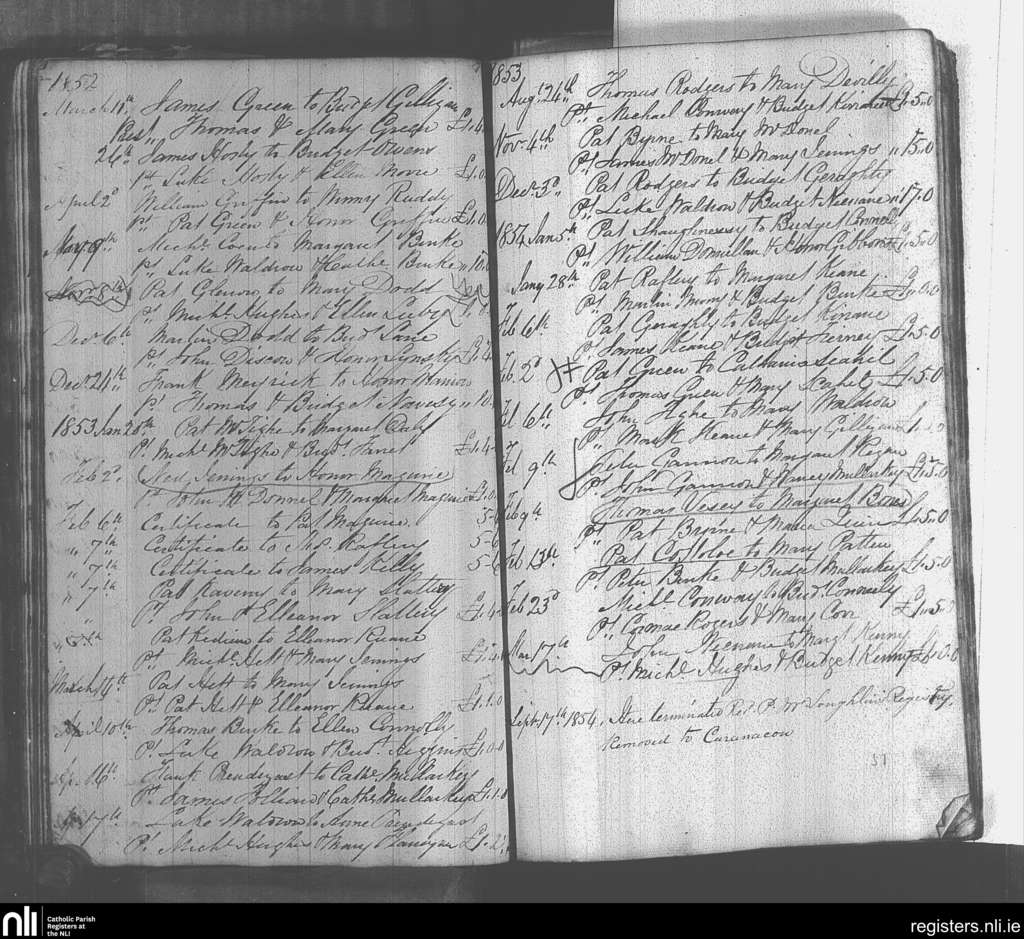 1852
March 11th James Green to Budget Gilligan
Pest" Thomas & Mary Green £1.4
26th James Hosty to Budget Owens
Pt Luke Hosty & Ellen Moore £1.0
April 2d William Griffin to Winny Ruddy
Pt Pat Green & Honor Griffin £1.0
Michl to Margaret Burke
Pt Luke Waldron & Cathe Burke " 10.
Pat Glenon to Mary Dodd
Pt Michl Hughes & Ellen
Decr 6th Martin Dodd to Budt Lane
Pt John & Honor
Decr 24th Frank Meyrick to Honor
Pt Thomas & Budget " 10.
1853 Jan 20th Pat McTighe to Margret Daly
Pt Michl McTighe & Budt £1.4
Feb 2d Ned Jenings to Honor Maguire
Pt John McDonnel & Margaret Maguire £1.0
Feb 6th Certificate to Pat Maguire 5-6
" 7th Certificate to Thos Raftery 5-6
" 7th Certificate to James Kelly 5-6
" 7th Pat Kaveny to Mary Slattery
" Pt John & Elleanor Slattery £1.4
Pat Rediean to Elleanor Kuane
Pt Michl Hett & Mary Jenings £1.
March 14th Pat Hett to Mary Jenings
Pt Pat Hett & Elleanor Kuane £1.1.0
April 10th Thomas Burke to Ellen Connolly
Pt Luke Waldron & Budt Higgins £1.0.0
16th Frank Prendergast to Cathe Mullarkey
Pt James & Cathe Mullarkey £1.1.0
17th Luke Waldron to Prendergast
Pt Michl Hughes & Mary Flanigan £1.2
1853
Augt 24th Thomas Rodgers to Mary Devilly
Pt Michael Conway & Budget £1.5.0
Novr 4th Pat Byrne to Mary McDonel
Pt James McDonel & Mary Jenings " 15.0
Decr 3d Pat Rodgers to Budget Geraghty
Pt Luke Waldron & Budget Keenane " 17.0
1854 Jan 5th Pat Shaughnessy to Budget
Pt William Domillan & Honor Gibbons £1.5.0
Jany 28th Pat Raftery to Margaret Keane
Pt Martin & Budget Burke £1.0.0
Feb 6th Pat Geraghty to Budget Kinane
Pt James Keane & Budget Tierney £1.5.0
Feb. 2d Pat Green to Catharin Scahil
Pt Thomas Green & Mary Scahil £1.5.0
Feb 6th John Tighe to Mary Waldron
Pt Mark Keane & Mary Gilligan
Feb 9th Peter Gannon to Margaret Regan
Pt John Gannon & Nancy Mullarkey £1.5.0
Feb 9th Thomas Vesey to Margaret
Pt Pat Byrne & Maria Quin £1.5.0
Feb 13th Pat Costoloe to Mary Patten
Pt Peter Burke & Budget Mullarkey £1.5.0
Feb 23d Michl Conway to Budt Connelly
Pt Cormac Rogers & Mary Corr £1.5.0
Mar 17th John Neenane to Margt Kenny
Pt Michl Hughes & Budget Kenny £1.0.0
Septr 17th 1854. Here terminates Revd P. McLoughlins Registry.
Removed to Caranacon
51
nli
Catholic Parish
Registers at
the NLI
registers.nli.ie